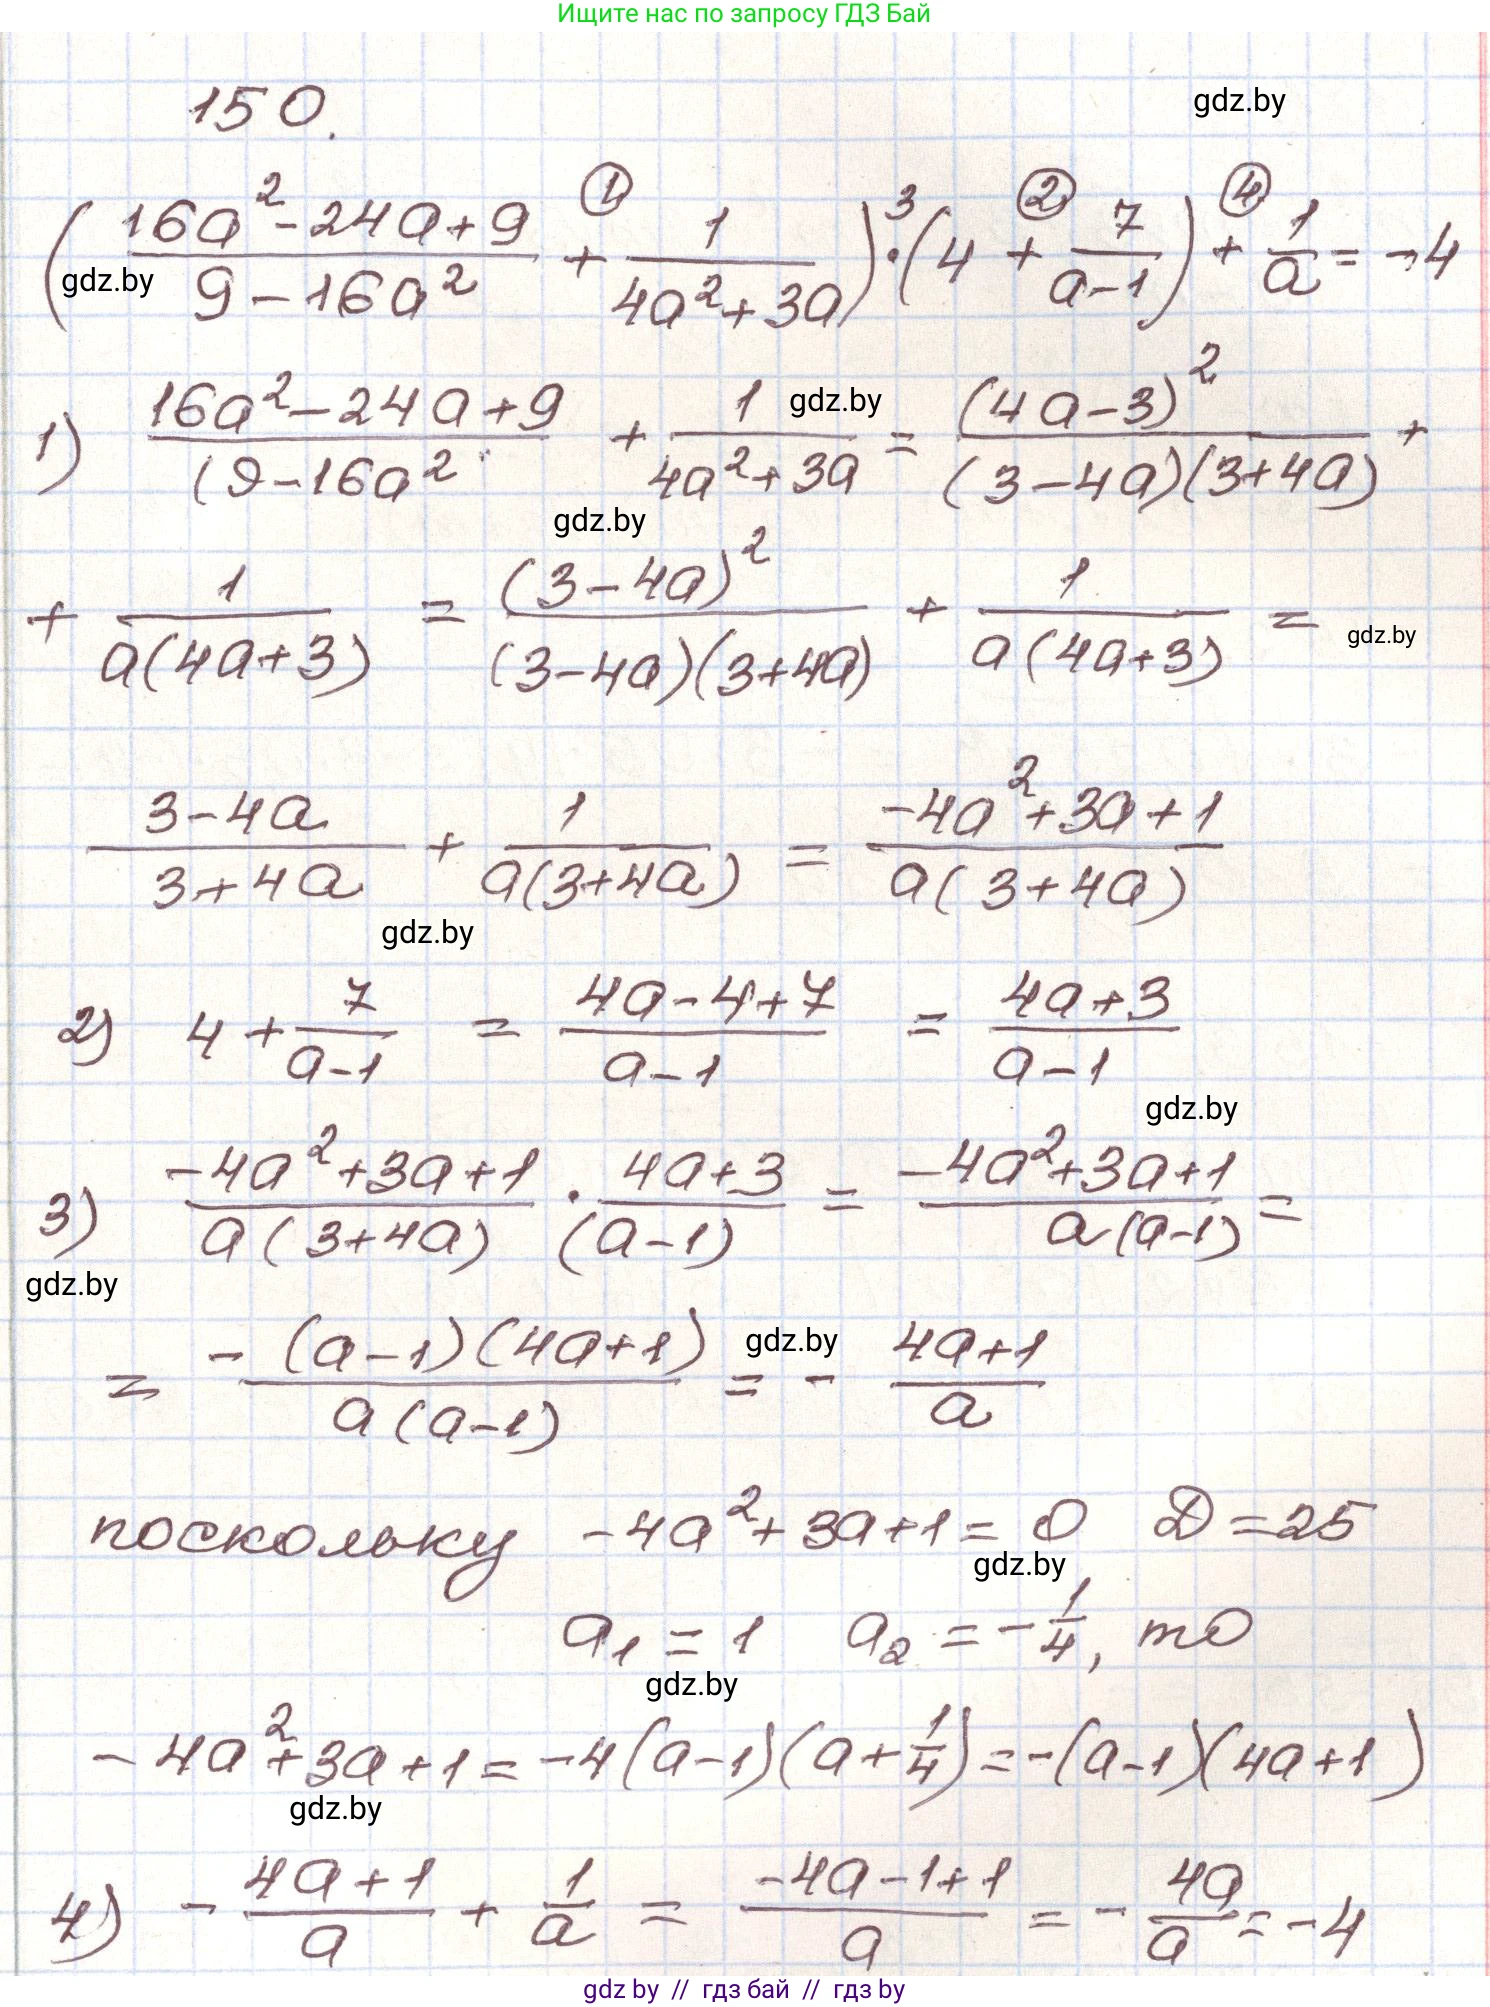 Ищите нас по запросу ГДЗ Бай
150.
gdz.by
(16a²-24a+9)/(9-16a²) + 1/(4a²+3a)) · (4 + 7/(a-1)) + 1/a = -4
① ③ ② ④
gdz.by
1) (16a²-24a+9)/(9-16a²) + 1/(4a²+3a) = (4a-3)²/((3-4a)(3+4a)) +
gdz.by
gdz.by
+ 1/(a(4a+3)) = (3-4a)²/((3-4a)(3+4a)) + 1/(a(4a+3)) =
gdz.by
(3-4a)/(3+4a) + 1/(a(3+4a)) = (-4a²+3a+1)/(a(3+4a))
gdz.by
2) 4 + 7/(a-1) = (4a-4+7)/(a-1) = (4a+3)/(a-1)
gdz.by
3) (-4a²+3a+1)/(a(3+4a)) · (4a+3)/(a-1) = (-4a²+3a+1)/(a(a-1)) =
gdz.by
= -(a-1)(4a+1)/(a(a-1)) = - (4a+1)/a
gdz.by
поскольку -4a²+3a+1=0 D=25
gdz.by
a₁ = 1 a₂ = -1/4, то
gdz.by
-4a²+3a+1 = -4(a-1)(a+1/4) = -(a-1)(4a+1)
gdz.by
4) - (4a+1)/a + 1/a = (-4a-1+1)/a = - 4a/a = -4
gdz by // гдз бай // гдз by